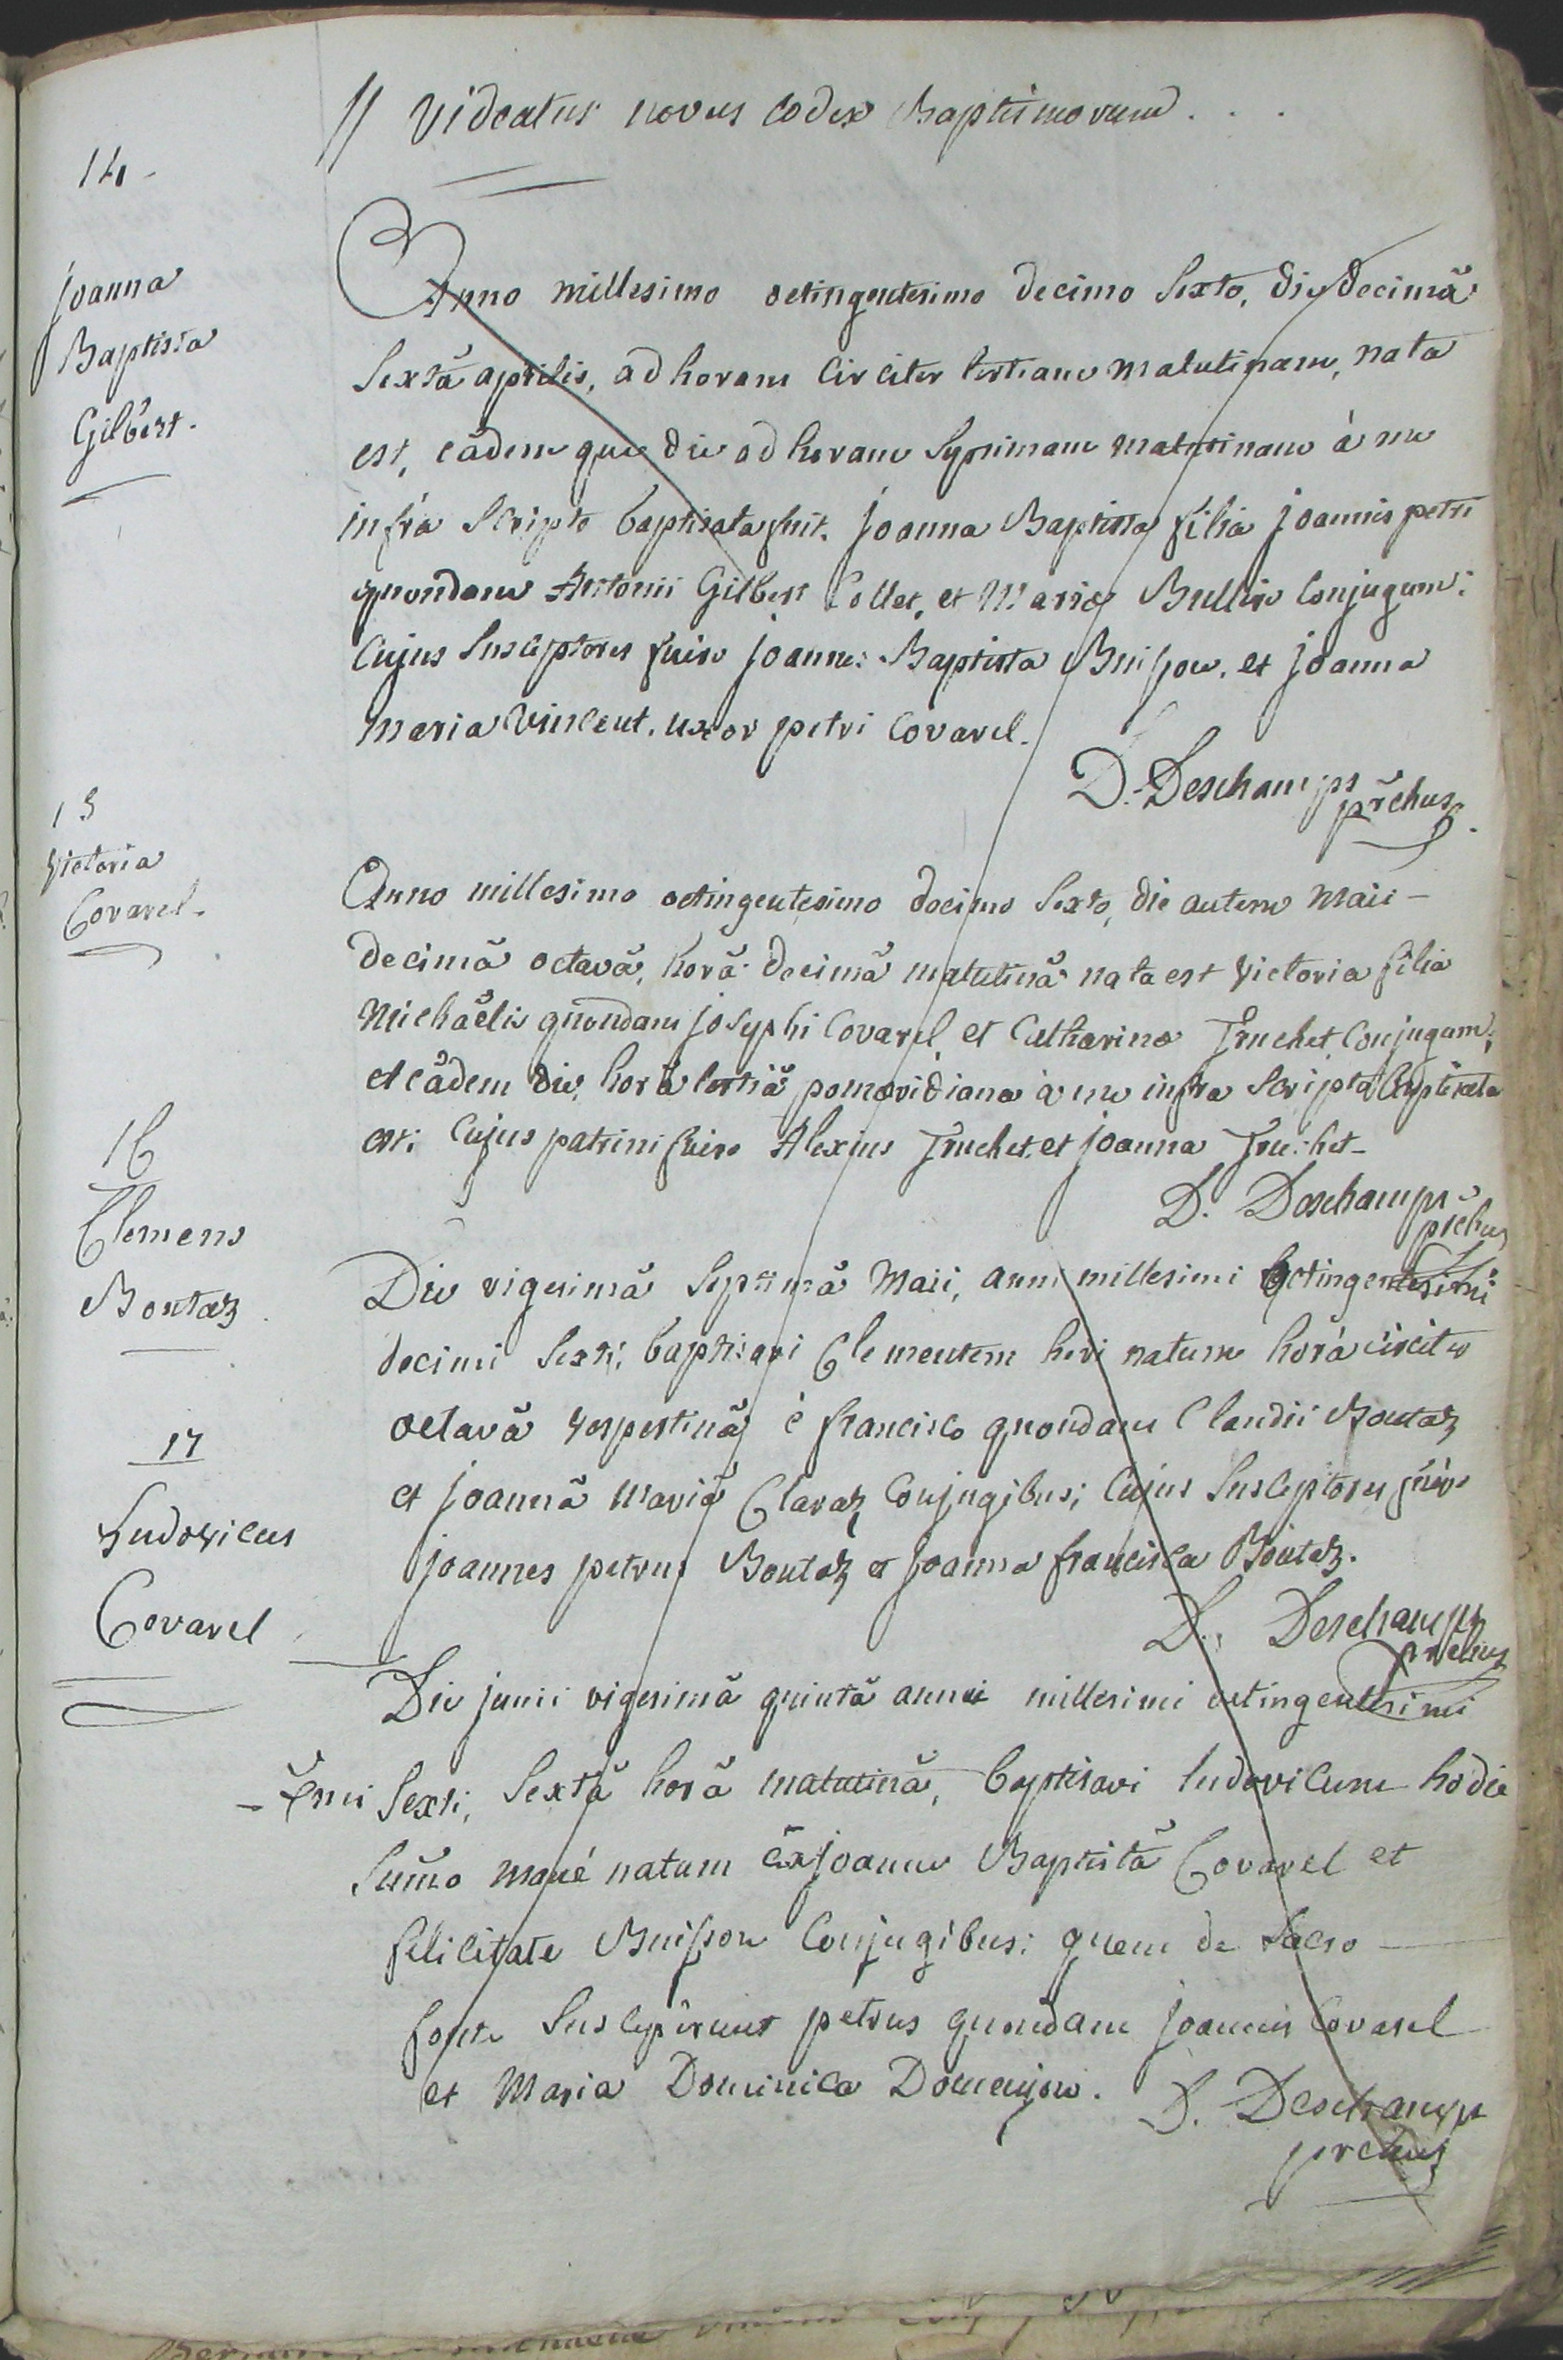 // Videatur novus codex Baptismorum . . .
14 -
Joanna
Baptista
Gilbert.
Anno millesimo octingentesimo decimo Sexto, die decimâ
Sextâ aprilis, ad horam circiter tertiam matutinam, nata
est, eâdem que die ad horam Septimam matutinam à me
infrà Scripto baptisata fuit. Joanna Baptista filia joannis petri
quondam Antonii Gilbert Collet, et Mariæ Bullier Conjugum:
Cujus Susceptores fuere joannes Baptista Buisson, et joanna
Maria Vincent, uxor petri Covarel.
D. Deschamps
pr̃chus.
15
Victoria
Covarel.
Anno millesimo octingentesimo decimo Sexto, die autem Maii -
decimâ octavâ, horâ decimâ matutinâ nata est Victoria filia
Michaëlis quondam josephi Covarel et Catharinæ Truchet Conjugum;
et eâdem die, horâ tertiâ pomeridiana à me infra Scripto baptisata
est; Cujus patrini fuere Alexius Truchet et joanna Truchet -
D. Deschamps
pr̃chus
16
Clemens
Boutaz
Die vigesimâ Septimâ Maii, anni millesimi octingentesimi
decimi Sexti, baptisavi Clementem heri natum horâ circiter
octavâ vespertinâ è francisco quondam Claudii Boutaz
et joannâ Mariâ Claraz, Conjugibus; Cujus Susceptores fuére
joannes petrus Boutaz et joanna francisca Boutaz.
D. Deschamps
prchus
17
Ludovicus
Covarel
Die junii vigesimâ quintâ anni millesimi octingentesimi
Sexti, Sextâ horâ matutinâ, baptisavi ludovicum hodie
Sum̃o mané natum ex joanne Baptistâ Covarel et
felicitate Buisson Conjugibus: quem de Sacro
fonte Susceperunt petrus quondam joannis Covarel
et Maria Dominica Domenjon.
D. Deschamps
prchus